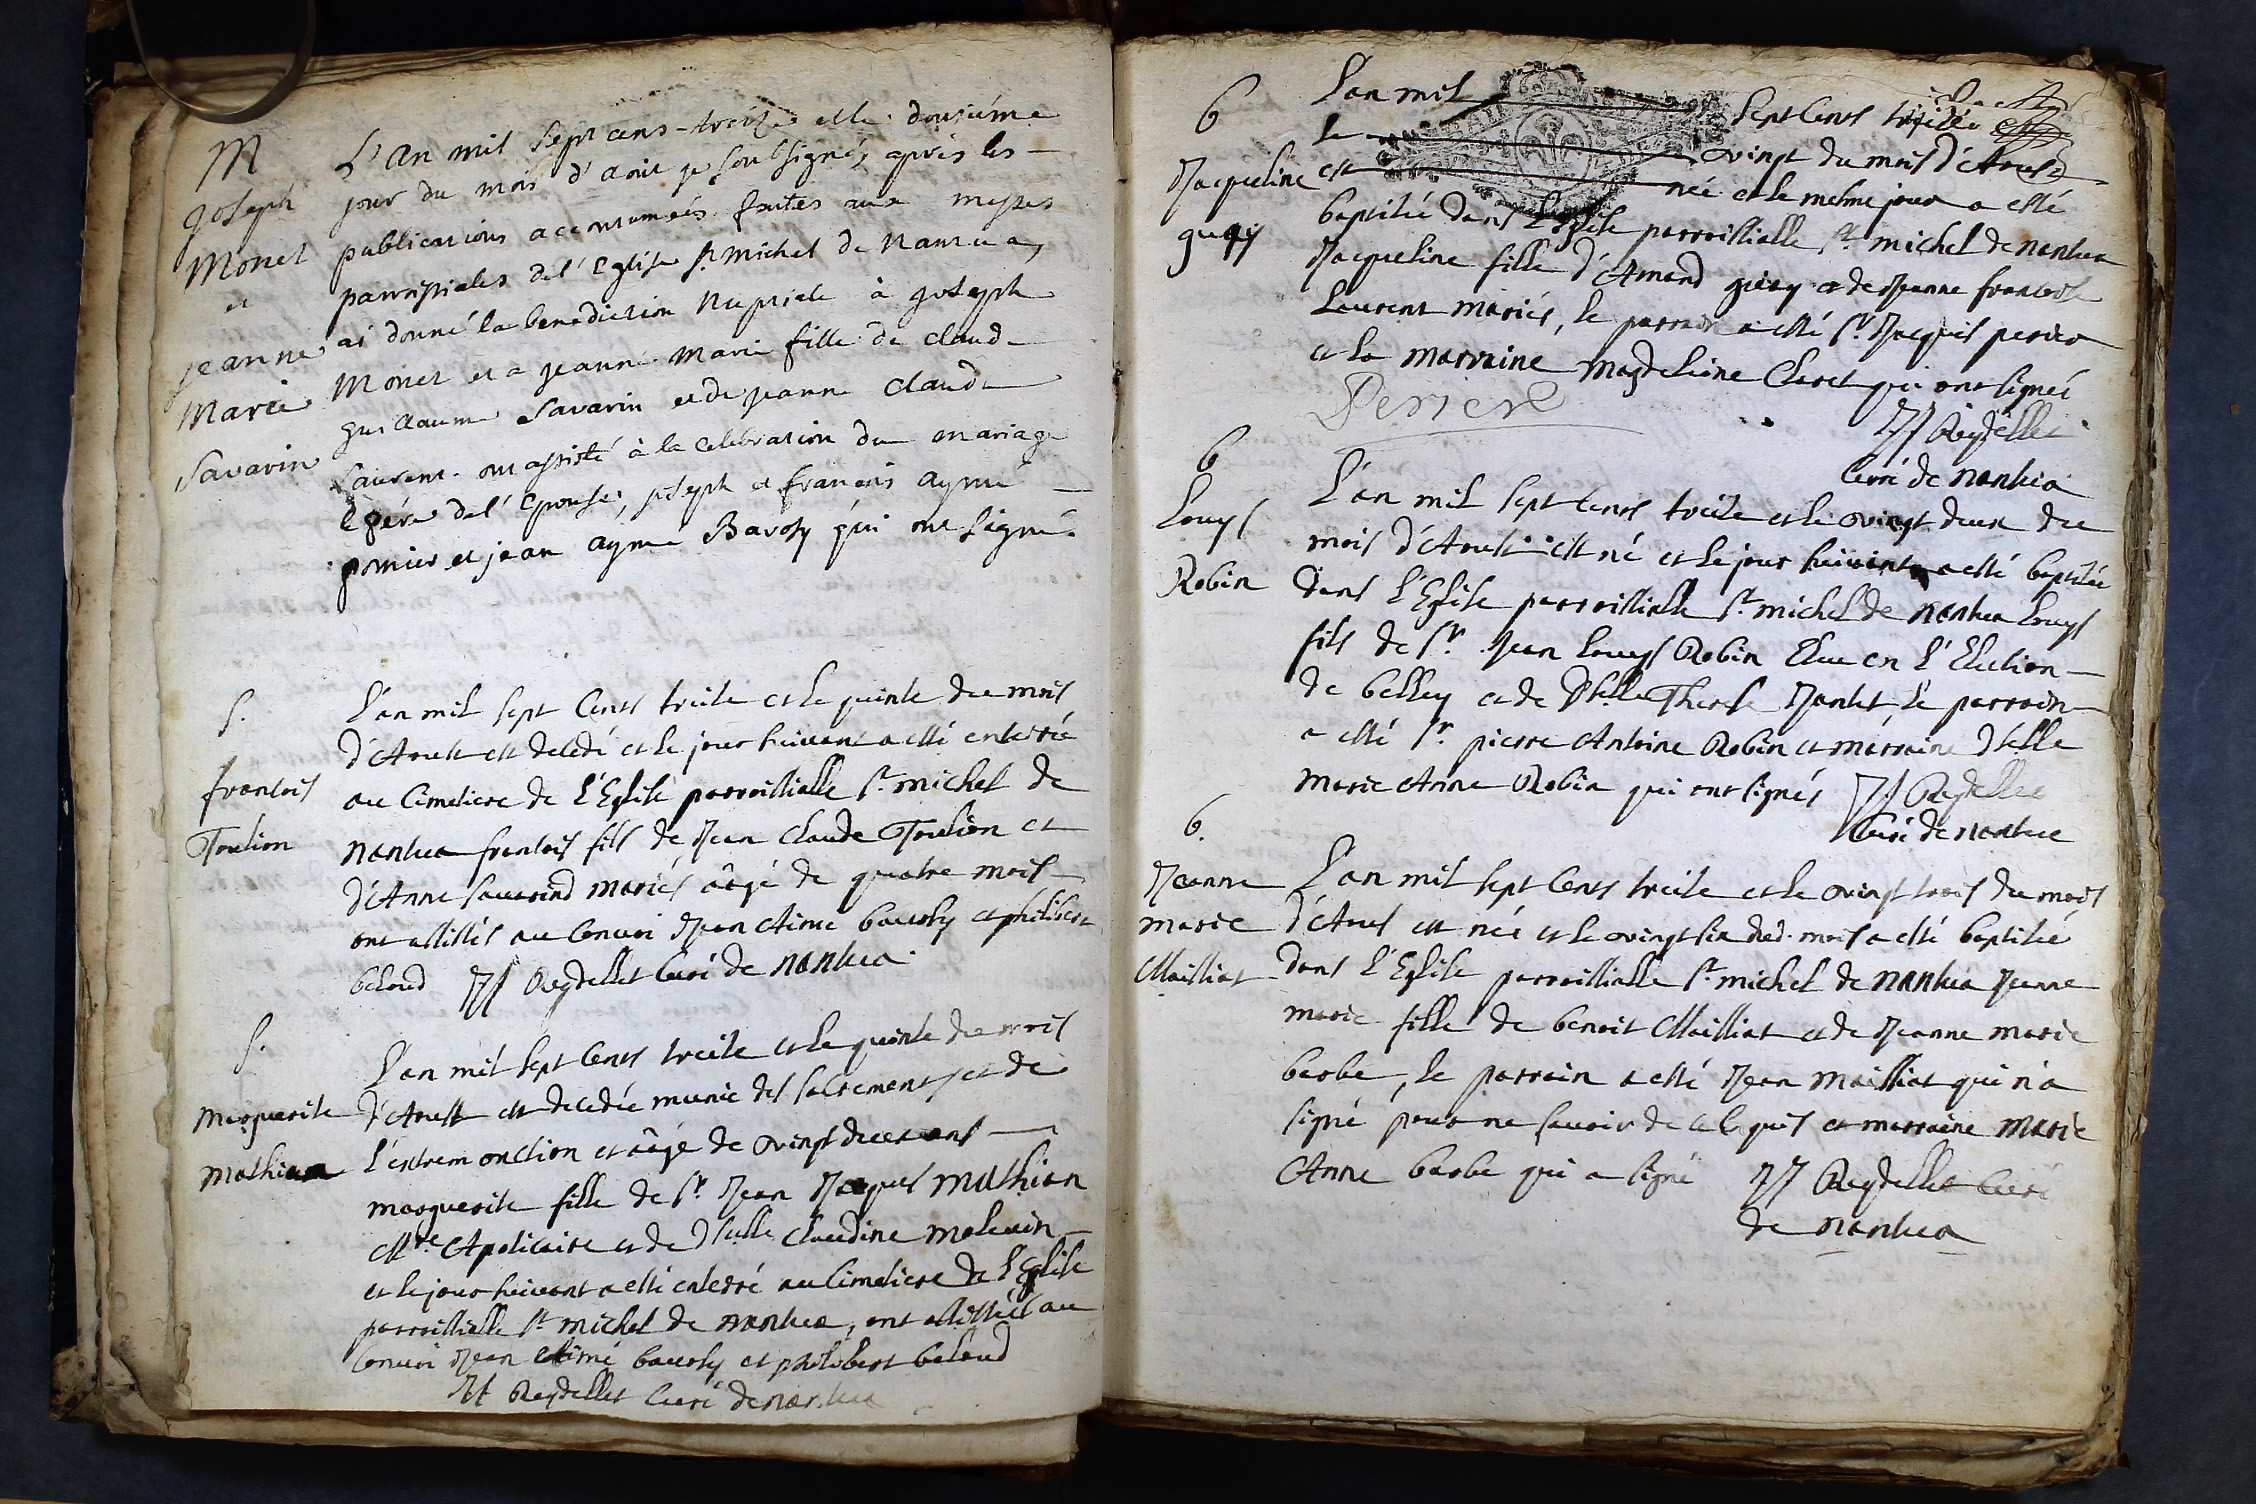 M
Joseph
Monet
et
jeanne
Marie
Savarin
L'an mil sept cens-treize et le dousiéme
jour du mois d'aout je soubsigné, après les
publications acoutumeés faites aux messes
parroissiales de l'Eglise st michel de Nantua,
ai donné la benediction Nuptiale à Joseph
Monet et a jeanne Marie fille de claude
guillaume Savarin et de jeanne claude
Laurent. ont assisté à la celebration du mariage
le pére de l'epouse, joseph et francois aymé
et jean aymé Baroly qui ont signé.
S.
francois
Toulion
L'an mil sept Cents treize et le quinze du mois
d'Aoust est decedé et le jour suivant a esté enterré
au Cimetiere de l'Eglise parroissialle st michel de
nantua francois fils de Jean Claude Toulion et
d'Anne mariés âagé de quatre mois
ont assistés au Convoi Jean Aimé baroly et philibert
beloud JJ Reydellet Curé de nantua
S.
Marguerite
Mathieu
L'an mil sept Cents treize et le quinze du mois
d'Aoust est decedée munie des sacrements et de
l'extrem onction et âagé de vingt deux ans
marguerite fille de sr Jean Jacques Mathieu
Mtre Apoticaire et de Dselle Claudine
et le jour suivant a esté enterré au Cimetiere de l'Eglise
parroissialle st michel de nantua, ont assistés au
Convoi Jean Aimé baroly et philibert beloud
JJ Reydellet Curé de nantua
6
Jacqueline
guey
L'an mil sept Cents treize
le vingt du mois d'Aoust
est née et le mesme jour a esté
baptisée dans l'Eglise parroissialle st michel de nantua
Jacqueline fille d'Amand guey et de Jeanne francoise
Laurent mariés, le parrain a esté sr Jacques perier
et la marraine Magdeleine Claret qui ont signés
Perier
JJ Reydellet
Curé de nantua
6
Louys
Robin
L'an mil sept Cents treize et le vingt deux du
mois d'Aoust est né et le jour suivant a esté baptisée
dans l'Eglise parroissialle st michel de nantua Louys
fils de sr Jean Louys Robin Elue en l'Election
de belley et de Dselle Therese Jantet, le parrain
a esté sr pierre Antoine Robin et marraine Dselle
Marie Anne Robin qui ont signés JJ Reydellet
Curé de nantua
6.
Jeanne
marie
Mailliat
L'an mil sept Cents treize et le vingt trois du mois
d'Aout est née et le vingt six dud. mois a esté baptisée
dans l'Eglise parroissialle st michel de nantua Jeanne
marie fille de benoit Mailliat et de Jeanne marie
barbe, le parrain a esté Jean Mailliat qui n'a
signé pour ne savoir de ce requis et marraine Marie
Anne barbe qui a signé JJ Reydellet Curé
de nantua